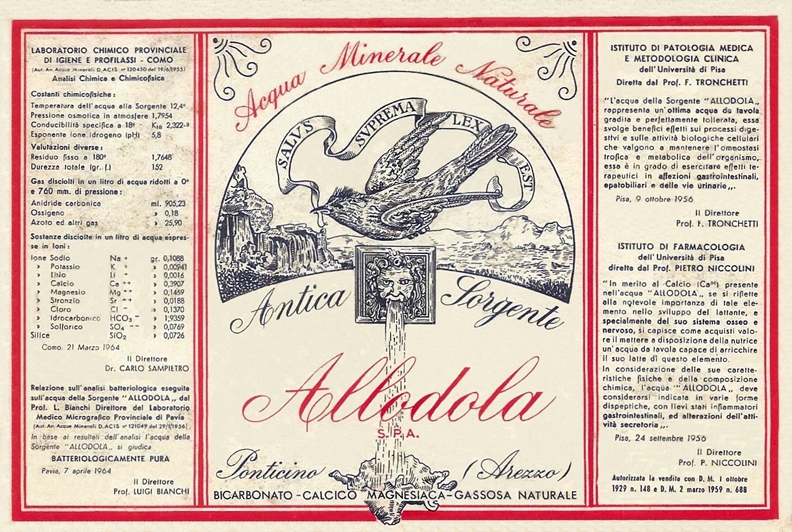 LABORATORIO CHIMICO PROVINCIALE
DI IGIENE E PROFILASSI - COMO
(Aut. An. Acque Minerali D.ACIS n° 120450 del 19/6/1955)
Analisi Chimica e Chimicofisica
Costanti chimicofisiche :
Temperatura dell'acqua alla Sorgente 12,4°
Pressione osmotica in atmosfere 1,7954
Conducibilità specifica a 18° : K18 2,322-³
Esponente ione idrogeno (pH) 5,8
Valutazioni diverse :
Residuo fisso a 180° 1,7648
Durezza totale (gr. f.) 152
Gas disciolti in un litro di acqua ridotti a 0°
e 760 mm. di pressione :
Anidride carbonica ml. 905,23
Ossigeno » 0,18
Azoto ed altri gas » 25,90
Sostanze disciolte in un litro di acqua espres-
se in ioni :
Ione Sodio Na + gr. 0,1088
» Potassio K + » 0,00941
» Litio Li + » 0,0016
» Calcio Ca ++ » 0,3907
» Magnesio Mg ++ » 0,1459
» Stronzio Sr ++ » 0,0188
» Cloro Cl − » 0,1370
» Idrocarbonico HCO3 − » 1,9359
» Solforico SO4 −− » 0,0769
Silice SiO2 » 0,0726
Como, 21 Marzo 1964
Il Direttore
Dr. CARLO SAMPIETRO
Relazione sull'analisi batteriologica eseguita
sull'acqua della Sorgente "ALLODOLA,, dal
Prof. L. Bianchi Direttore del Laboratorio
Medico Micrografico Provinciale di Pavia
(Aut. An. Acque Minerali D.ACIS n° 121049 del 29/1/1956)
In base ai resultati dell'analisi l'acqua della
Sorgente "ALLODOLA,, si giudica
BATTERIOLOGICAMENTE PURA
Pavia, 7 aprile 1964
Il Direttore
Prof. LUIGI BIANCHI
Acqua Minerale Naturale
SALVS SVPREMA LEX EST
Antica Sorgente
Allodola
S.P.A.
Ponticino (Arezzo)
BICARBONATO - CALCICO MAGNESIACA - GASSOSA NATURALE
ISTITUTO DI PATOLOGIA MEDICA
E METODOLOGIA CLINICA
dell'Università di Pisa
Diretta dal Prof. F. TRONCHETTI
"L'acqua della Sorgente "ALLODOLA,,
rappresenta un'ottima acqua da tavola
gradita e perfettamente tollerata, essa
svolge benefici effetti sui processi dige-
stivi e sulle attività biologiche cellulari
che valgono a mantenere l'omeostasi
trofica e metabolica dell'organismo,
essa è in grado di esercitare effetti te-
rapeutici in affezioni gastrointestinali,
epatobiliari e delle vie urinarie,,.
Pisa, 9 ottobre 1956
Il Direttore
Prof. F. TRONCHETTI
ISTITUTO DI FARMACOLOGIA
dell'Università di Pisa
diretta dal Prof. PIETRO NICCOLINI
"In merito al Calcio (Ca++) presente
nell'acqua "ALLODOLA,, se si riflette
alla notevole importanza di tale ele-
mento nello sviluppo del lattante, e
specialmente del suo sistema osseo e
nervoso, si capisce come acquisti valo-
re il mettere a disposizione della nutrice
un'acqua da tavola capace di arricchire
il suo latte di questo elemento.
In considerazione delle sue caratte-
ristiche fisiche e della composizione
chimica, l'acqua "ALLODOLA,, deve
considerarsi indicata in varie forme
dispeptiche, con lievi stati infiammatori
gastrointestinali, ed alterazioni dell'atti-
vità secretoria,,.
Pisa, 24 settembre 1956
Il Direttore
Prof. P. NICCOLINI
Autorizzata la vendita con D. M. 1 ottobre
1929 n. 148 e D. M. 2 marzo 1959 n. 688